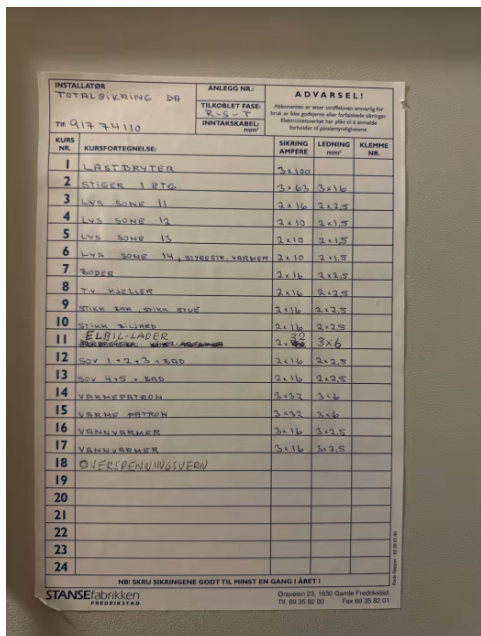 INSTALLATØR
TOTALSIKRING DA
Tlf: 917 74110
ANLEGG NR.:
TILKOBLET FASE:
R-S-T
INNTAKSKABEL:
mm²
ADVARSEL!
Abonnenten er etter straffeloven ansvarlig for
bruk av ikke godkjente eller forfalskede sikringer.
Elektrisitetsverket har plikt til å anmelde
forholdet til påtalemyndighetene.
KURS NR. KURSFORTEGNELSE: SIKRING AMPERE LEDNING mm² KLEMME NR.
1 LASTBRYTER 3x100
2 STIGER 1 ETG 3x63 3x16
3 LYS SONE 11 2x16 2x2,5
4 LYS SONE 12 2x10 2x1,5
5 LYS SONE 13 2x10 2x1,5
6 LYS SONE 14, STYRESTR. VARMER 2x10 2x1,5
7 BODER 2x16 2x2,5
8 TV KJELLER 2x16 2x2,5
9 STIKK BAR, STIKK STUE 2x16 2x2,5
10 STIKK BILJARD 2x16 2x2,5
11 ELBIL-LADER 2x32 3x6
12 SOV 1+2+3+BAD 2x16 2x2,5
13 SOV 4+5+BAD 2x16 2x2,5
14 VARMEPATRON 3x32 3x6
15 VARME PATRON 3x32 3x6
16 VANNVARMER 3x16 3x2,5
17 VANNVARMER 3x16 3x2,5
18 OVERSPENNINGSVERN
19
20
21
22
23
24
NB! SKRU SIKRINGENE GODT TIL MINST EN GANG I ÅRET!
STANSEfabrikken
FREDRIKSTAD
Øraveien 23, 1630 Gamle Fredrikstad
Tlf. 69 35 82 00 Fax 69 35 82 01